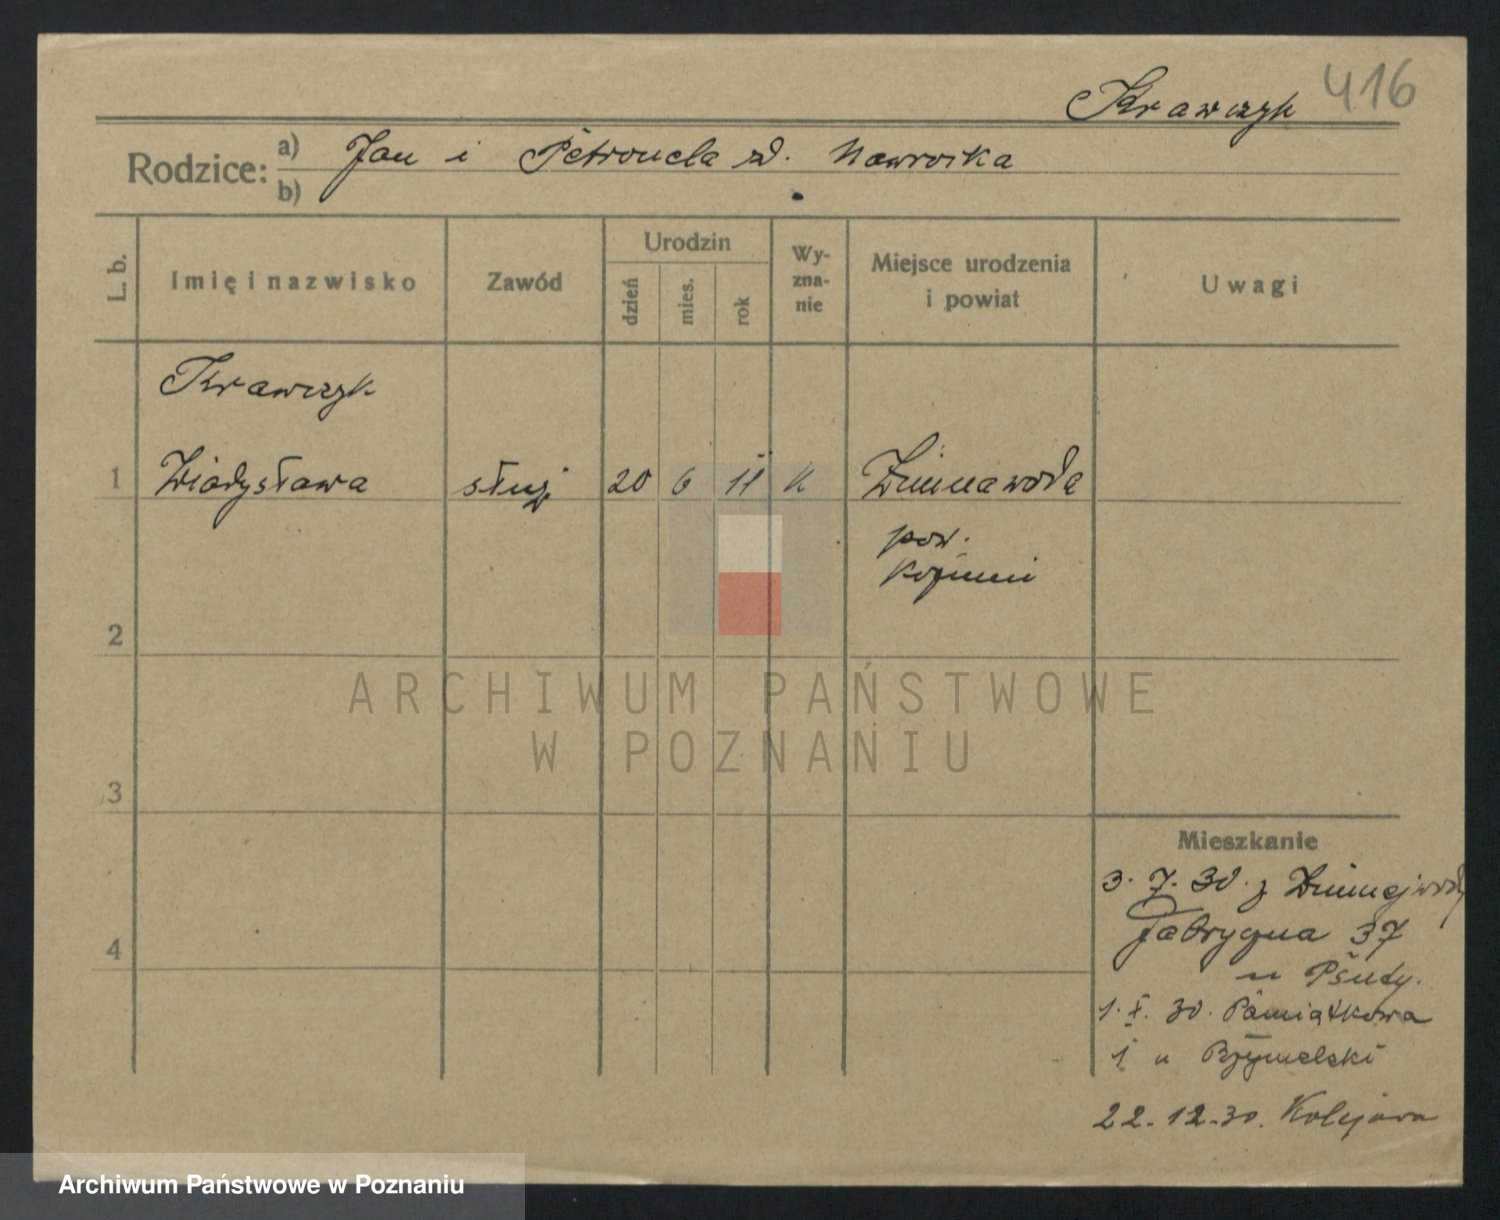 Krawczyk 416
Rodzice: a) Jan i Petronela zd. Nawrocka
b)
L. b.
Imię i nazwisko
Zawód
Urodzin
dzień
mies.
rok
Wy-
zna-
nie
Miejsce urodzenia
i powiat
Uwagi
Krawczyk
1 Władysława służ 20 6 11 k Zimnawoda
pow.
Koźmin
2
3
4
ARCHIWUM PAŃSTWOWE
W POZNANIU
Mieszkanie
3. 7. 30. z Zimnejwody
Fabryczna 37
u
1. X. 30. Pamiątkowa
1 u
22. 12. 30. Kolejowa
Archiwum Państwowe w Poznaniu